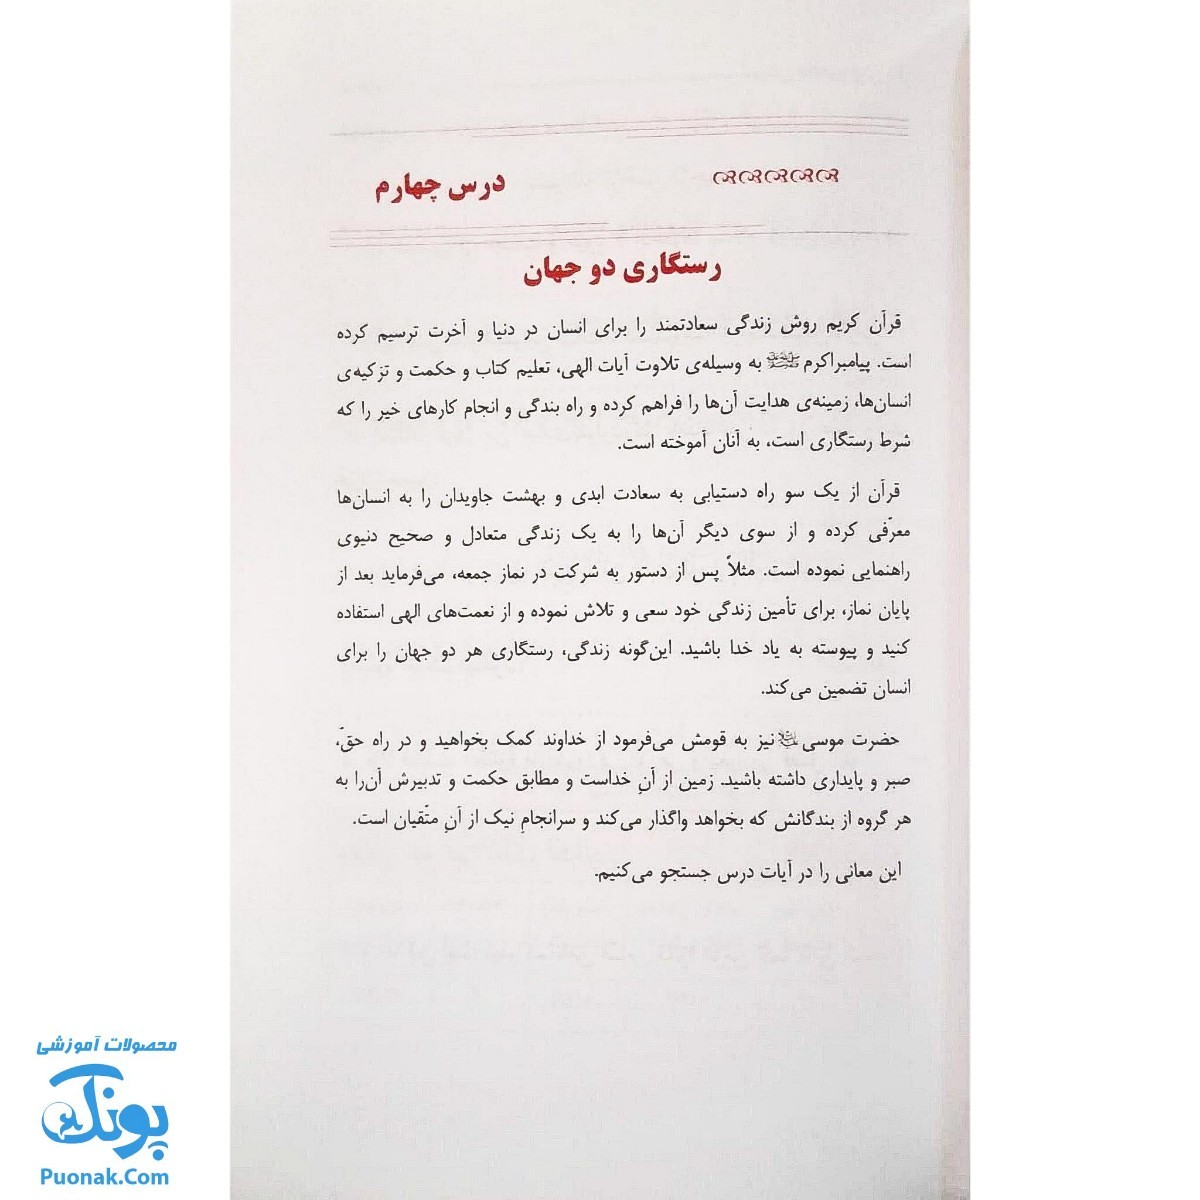 درس چهارم
رستگاری دو جهان
قرآن کریم روش زندگی سعادتمند را برای انسان در دنیا و آخرت ترسیم کرده
است. پیامبراکرم ﷺ به وسیله‌ی تلاوت آیات الهی، تعلیم کتاب و حکمت و تزکیه‌ی
انسان‌ها، زمینه‌ی هدایت آن‌ها را فراهم کرده و راه بندگی و انجام کارهای خیر را که
شرط رستگاری است، به آنان آموخته است.
قرآن از یک سو راه دستیابی به سعادت ابدی و بهشت جاویدان را به انسان‌ها
معرّفی کرده و از سوی دیگر آن‌ها را به یک زندگی متعادل و صحیح دنیوی
راهنمایی نموده است. مثلاً پس از دستور به شرکت در نماز جمعه، می‌فرماید بعد از
پایان نماز، برای تأمین زندگی خود سعی و تلاش نموده و از نعمت‌های الهی استفاده
کنید و پیوسته به یاد خدا باشید. این‌گونه زندگی، رستگاری هر دو جهان را برای
انسان تضمین می‌کند.
حضرت موسی نیز به قومش می‌فرمود از خداوند کمک بخواهید و در راه حقّ،
صبر و پایداری داشته باشید. زمین از آنِ خداست و مطابق حکمت و تدبیرش آن‌را به
هر گروه از بندگانش که بخواهد واگذار می‌کند و سرانجامِ نیک از آنِ متّقیان است.
این معانی را در آیات درس جستجو می‌کنیم.
محصولات آموزشی
پونک
Puonak.Com